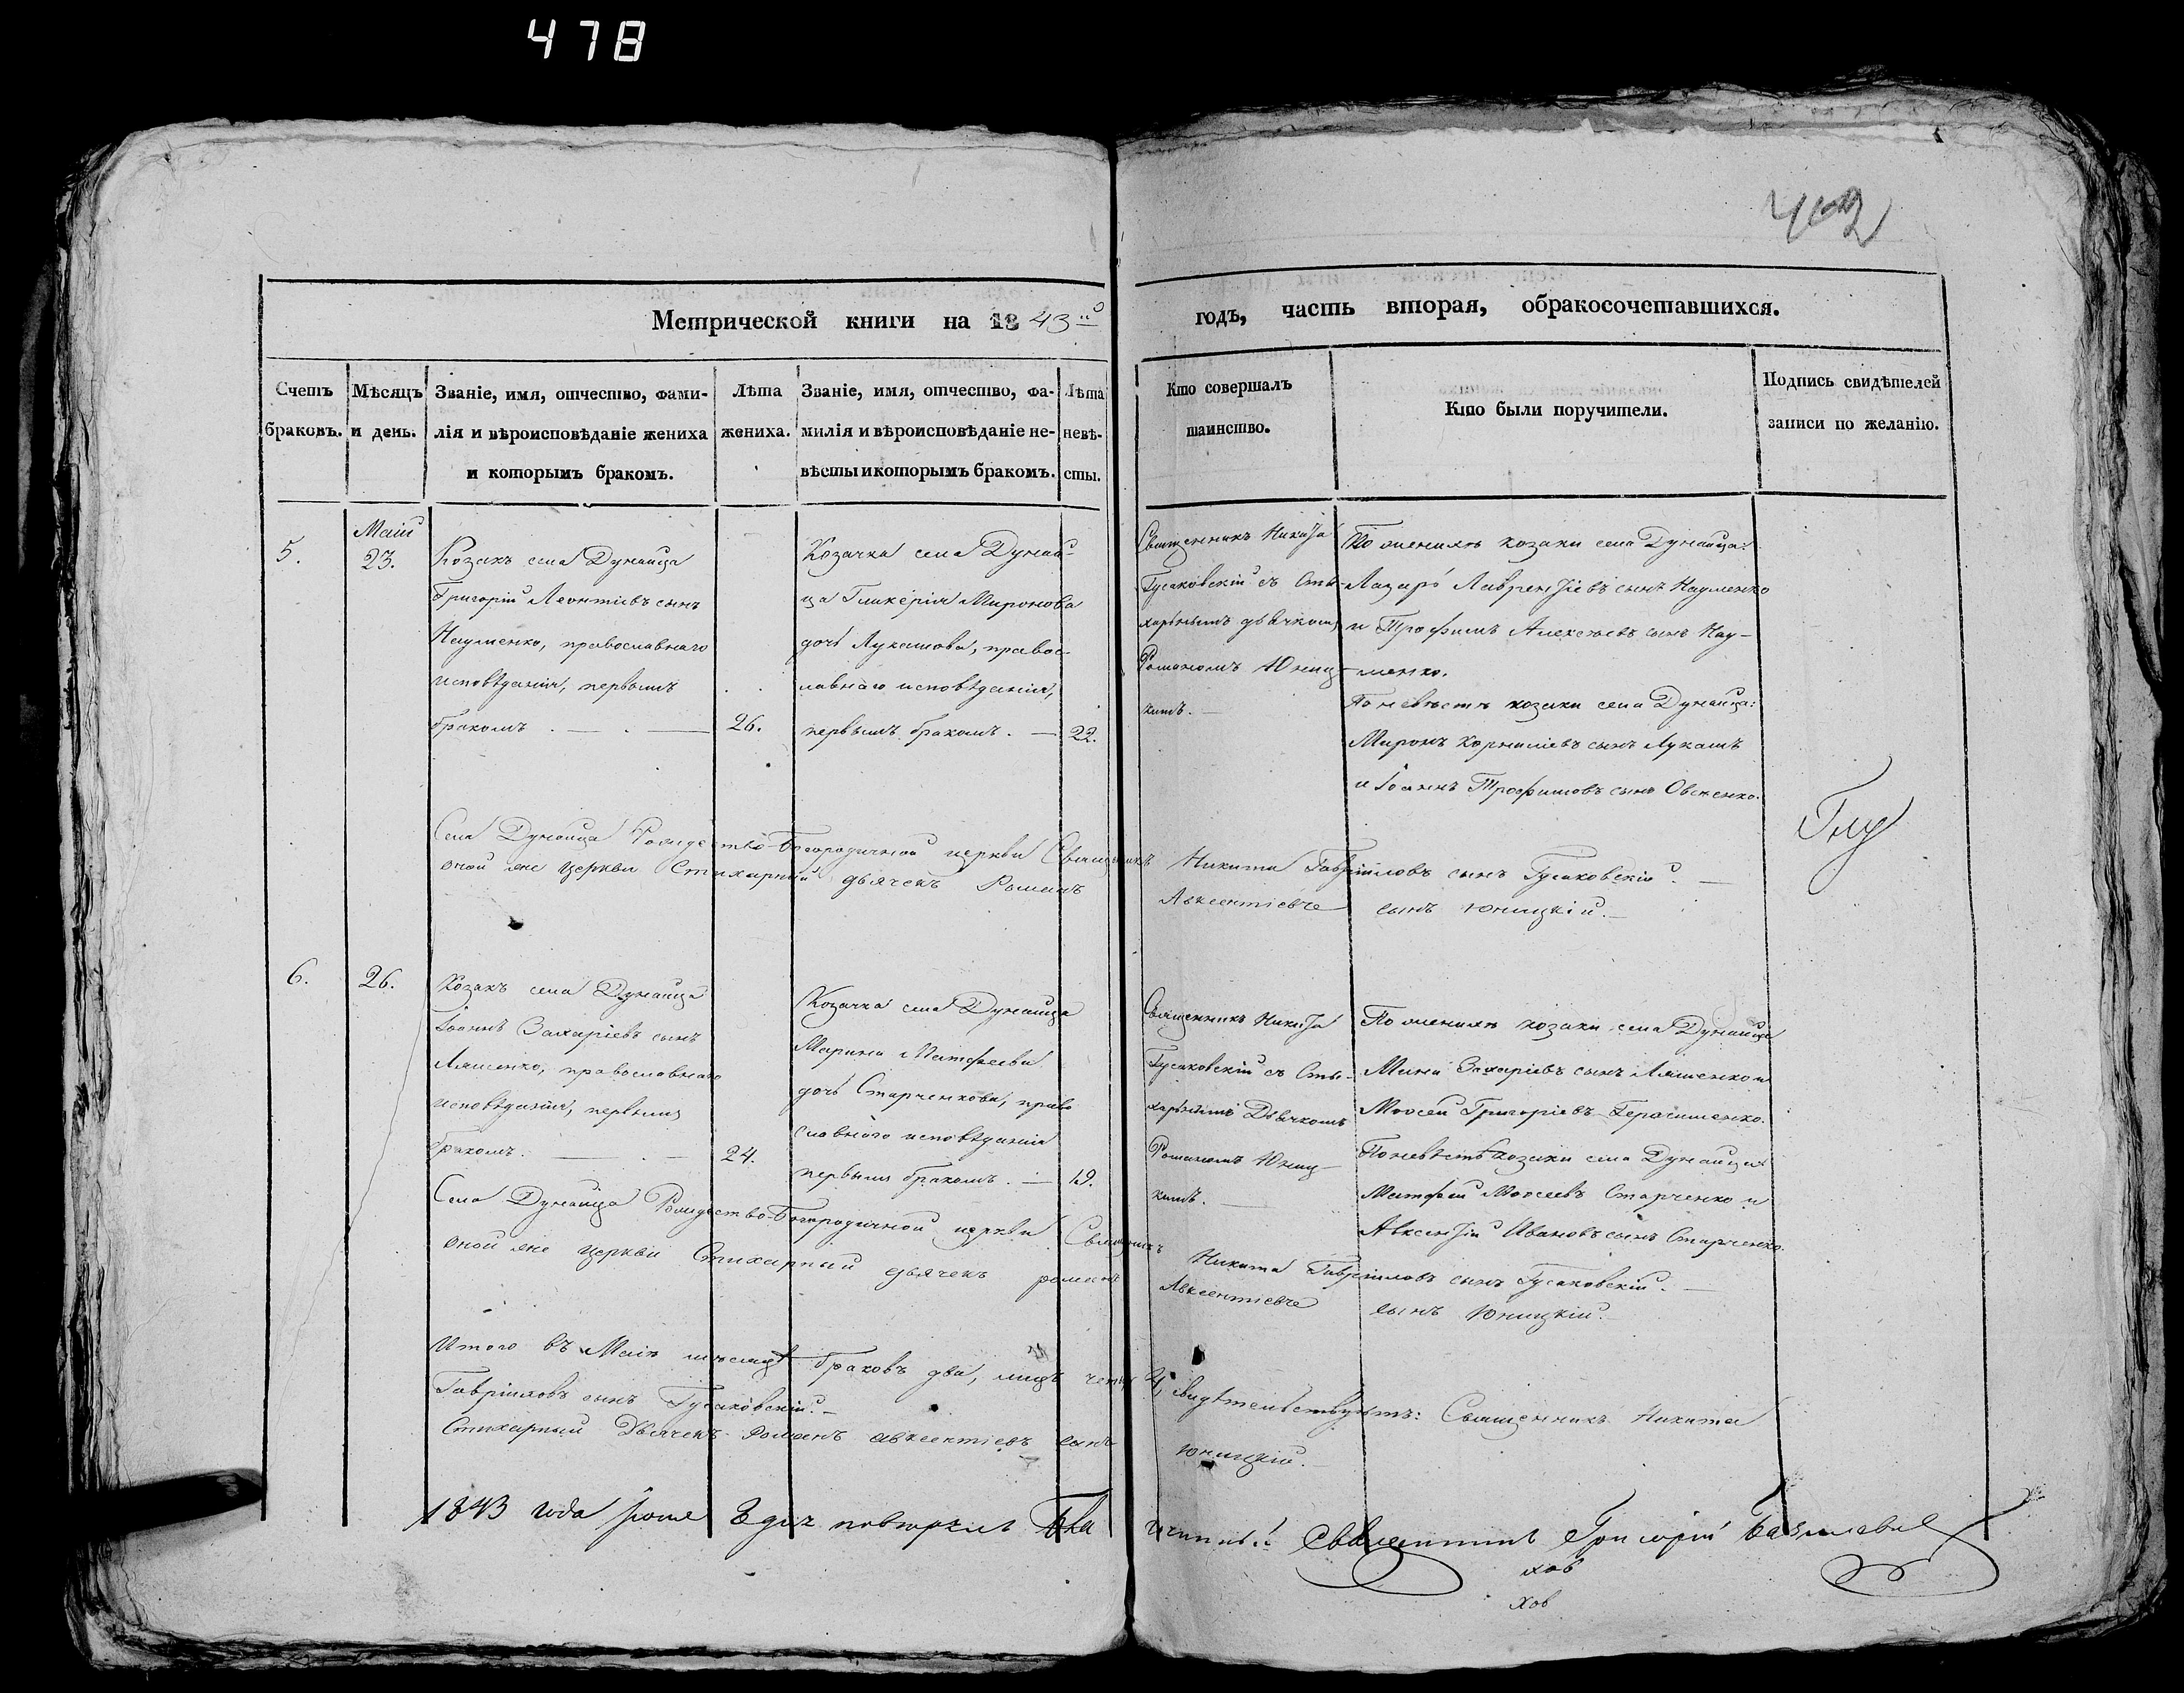 478
402
Метрической книги на 1843ій
годъ, часть вторая, обракосочетавшихся.
Счетъ
браковъ.
Мѣсяцъ
и день.
Званіе, имя, отчество, фами-
лія и вѣроисповѣданіе жениха
и которымъ бракомъ.
Лѣта
жениха.
Званіе, имя, отчество, фа-
милія и вѣроисповѣданіе не-
вѣсты и которымъ бракомъ.
Лѣта
невѣ-
сты.
Кто совершалъ
таинство.
Кто были поручители.
Подпись свидѣтелей
записи по желанію.
5.
Маій
23.
Козакъ села Дунайца
Григорій Леонтіевъ сынъ
Науменко, православнаго
исповѣданія, первымъ
бракомъ
26.
Козачка села Дунай-
ца Гликерія Миронова
дочь Лукашова, правос-
лавнаго исповѣданія,
первымъ бракомъ.
22.
Священникъ Никита
Гусаковскій съ Сти-
харнымъ дьячкомъ
Романомъ Юниц-
кимъ.
По женихѣ козаки села Дунайца:
Лазарь Лаврентіевъ сынъ Науменко
и Трофимъ Алексѣевъ сынъ Нау-
менко.
По невѣстѣ козаки села Дунайца:
Миронъ Корниліевъ сынъ Лукашъ
и Іоаннъ Трофимовъ сынъ
Села Дунайца Рождество-Богородичной церкви Священникъ Никита Гавріиловъ сынъ Гусаковскій.
оной же церкви Стихарный дьячекъ Романъ Авксентіевъ сынъ Юницкій.
Глу
6.
26.
Козакъ села Дунайца
Іоаннъ Захаріевъ сынъ
Ляшенко, православнаго
исповѣданія, первымъ
бракомъ.
24.
Козачка села Дунайца
Марина Матфеева
дочь Старченкова, право
славнаго исповѣданія
первымъ бракомъ.
19.
Священникъ Никита
Гусаковскій съ Сти-
харнымъ Дьячкомъ
Романомъ Юниц-
кимъ.
По женихѣ козаки села Дунайца
Мина Захаріевъ сынъ Ляшенко и
Моѵсей Григоріевъ Герасименко.
По невѣстѣ козаки села Дунайца
Матфей Моѵсеевъ Старченко и
Авксентій Ивановъ сынъ Старченко.
Села Дунайца Рождество-Богородичной церкви Священникъ Никита Гавріиловъ сынъ Гусаковскій.
оной же церкви Стихарный дьячекъ романъ Авксентіевъ сынъ Юницкій.
Итого въ Маіѣ мѣсяцѣ браковъ два, лицъ свидѣтельствуютъ: Священникъ Никита
Гавріиловъ сынъ Гусаковскій.
Стихарный Дьячекъ Романъ авксентіевъ сынъ Юницкій.
1843 года 8 дня Григорій